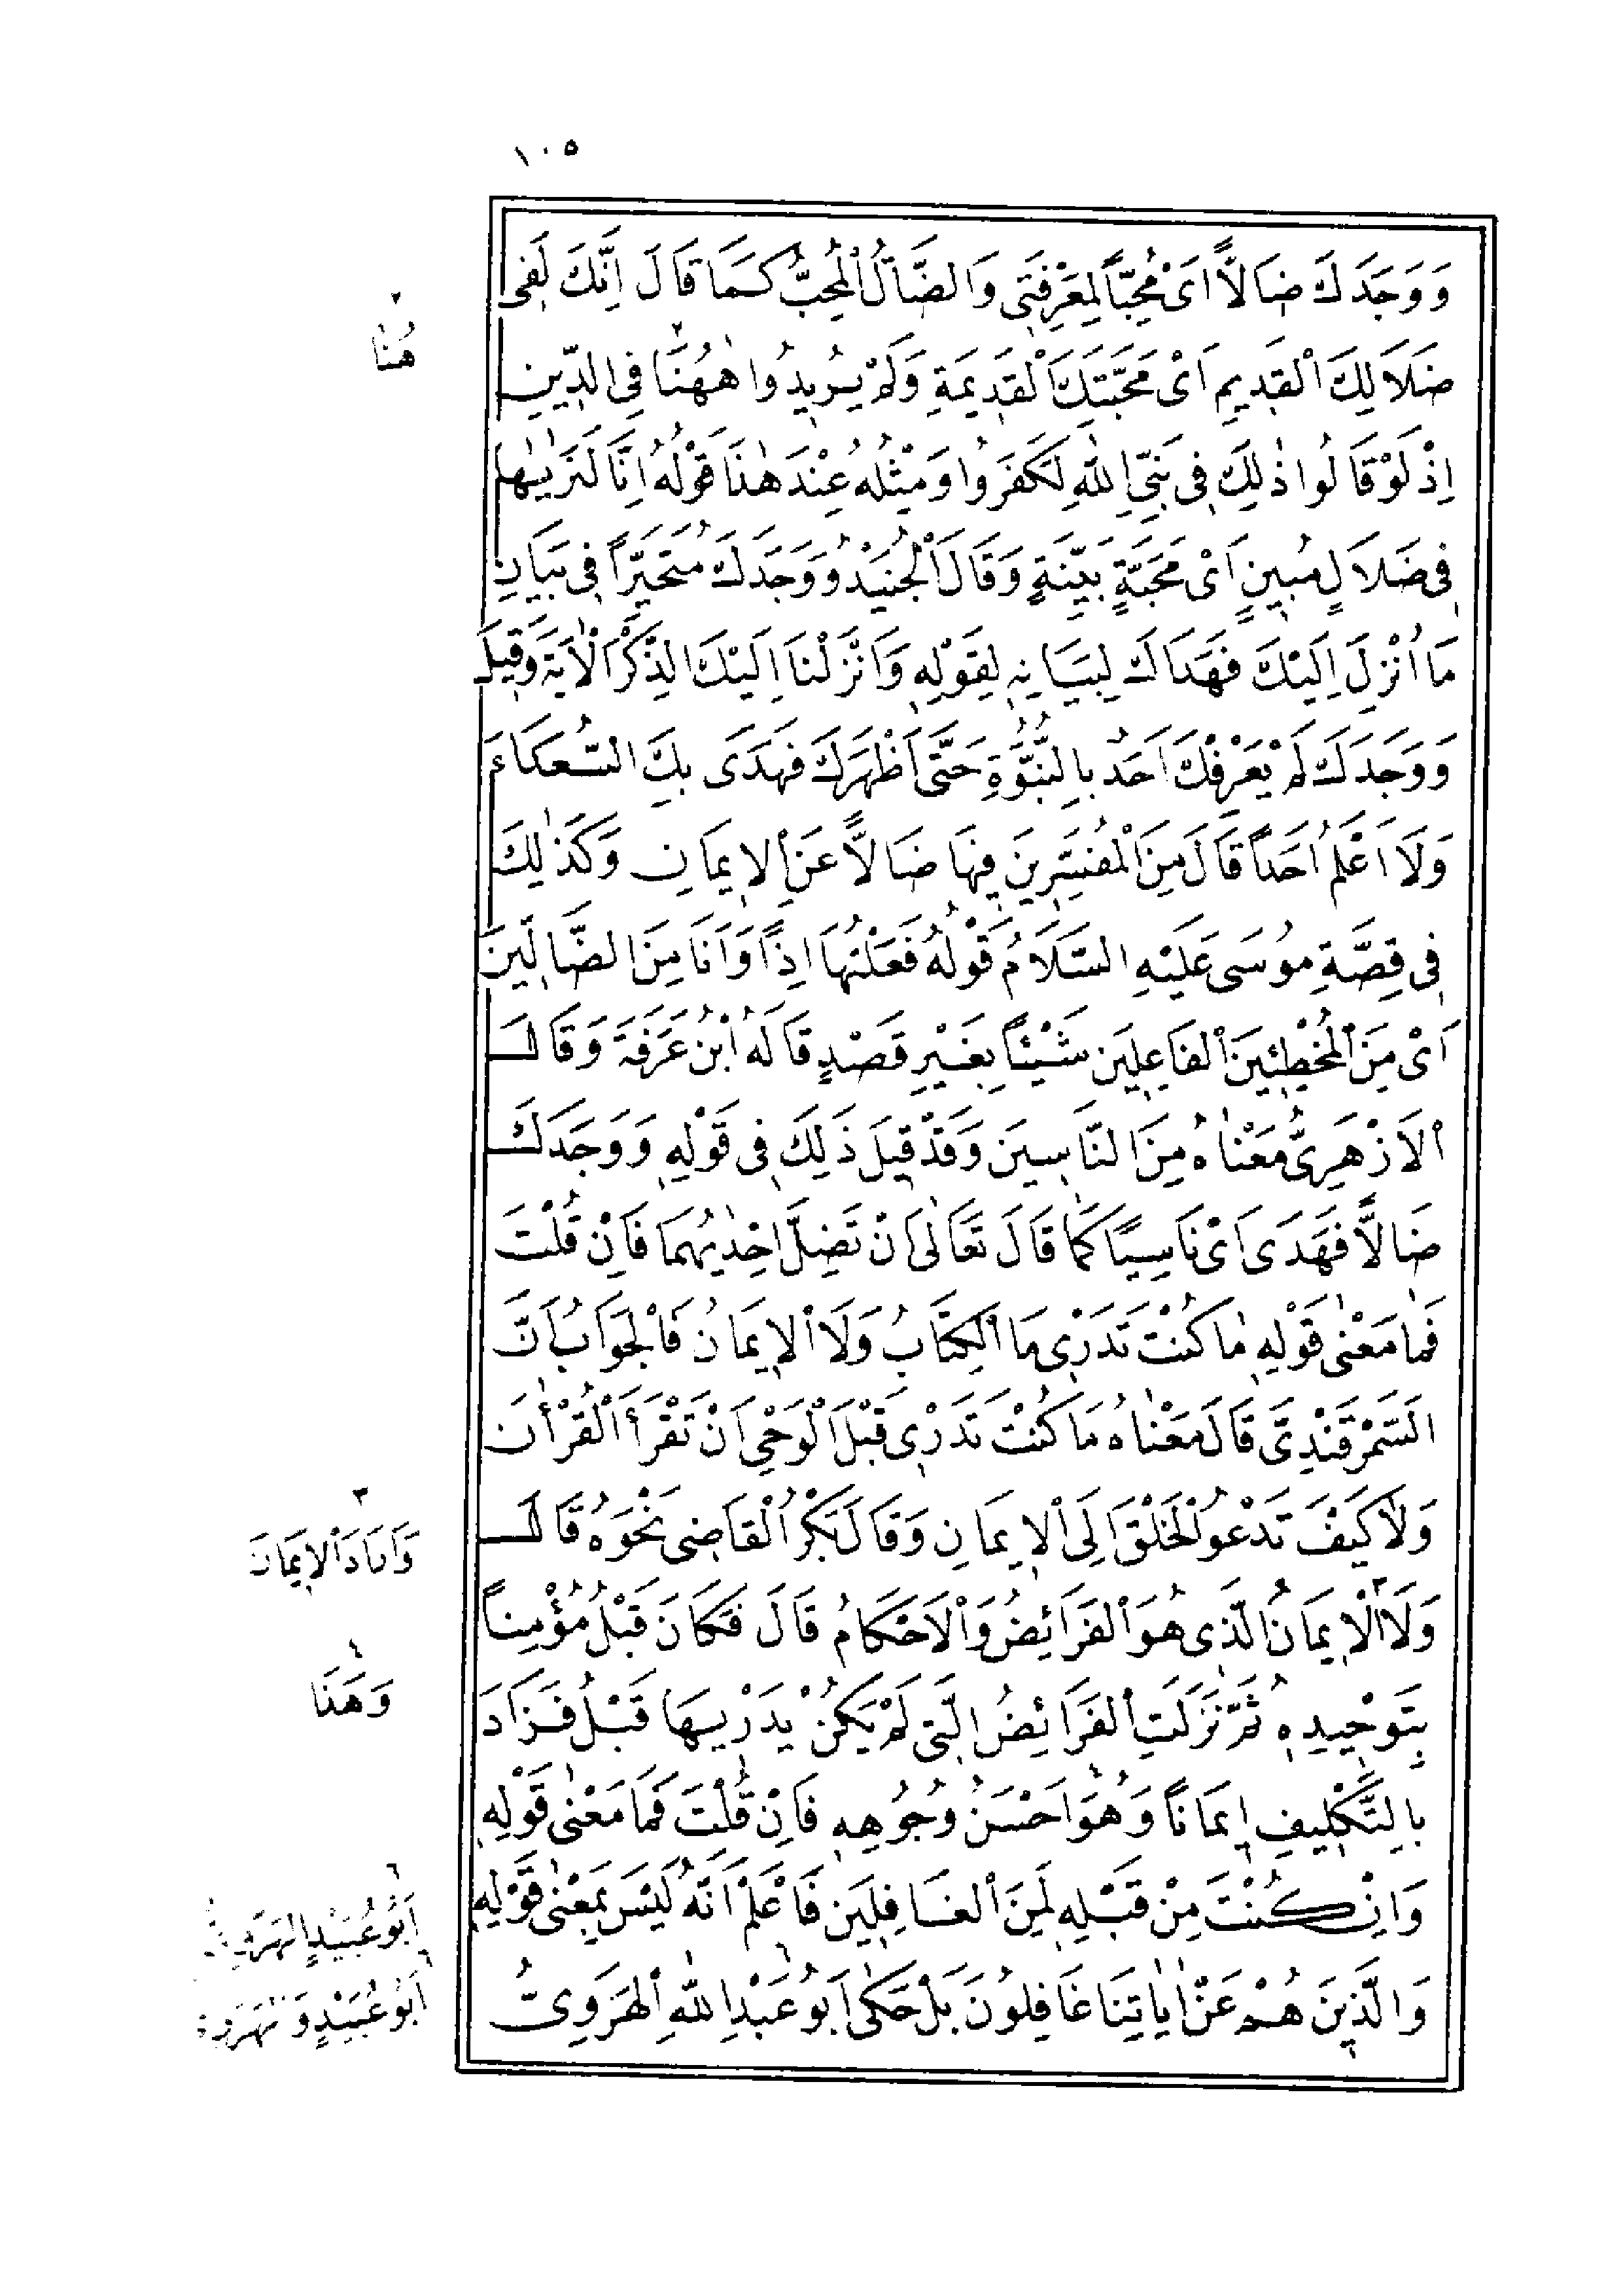 ١٠٥
وَوَجَدَكَ ضَالًّا اَىْ مُحِبًّا لِمَعْرِفَتِى وَالضَّالُّ الْمُحِبُّ كَمَا قَالَ اِنَّكَ لَفِى
ضَلَالِكَ الْقَدِيمِ اَىْ مَحَبَّتِكَ الْقَدِيمَةِ وَلَمْ يُرِيدُوا هٰهُنَا فِى الدِّينِ
اِذْ لَوْ قَالُوا ذٰلِكَ فِى نَبِىِّ اللهِ لَكَفَرُوا وَمِثْلُهُ عِنْدَ هٰذَا قَوْلُهُ اِنَّا لَنَرٰيهَا
فِى ضَلَالٍ مُبِينٍ اَىْ مَحَبَّةٍ بَيِّنَةٍ وَقَالَ الْجُنَيْدُ وَوَجَدَكَ مُتَحَيِّرًا فِى بَيَانِ
مَا اُنْزِلَ اِلَيْكَ فَهَدَاكَ لِبَيَانِهِ لِقَوْلِهِ وَاَنْزَلْنَا اِلَيْكَ الذِّكْرَ الْاٰيَةَ وَقِيلَ
وَوَجَدَكَ لَمْ يَعْرِفْكَ اَحَدٌ بِالنُّبُوَّةِ حَتَّى اَظْهَرَكَ فَهَدَى بِكَ السُّعَدَاءَ
وَلَا اَعْلَمُ اَحَدًا قَالَ مِنَ الْمُفَسِّرِينَ فِيهَا ضَالًّا عَنِ الْاِيمَانِ وَكَذٰلِكَ
فِى قِصَّةِ مُوسَى عَلَيْهِ السَّلَامُ قَوْلُهُ فَعَلْتُهَا اِذًا وَاَنَا مِنَ الضَّالِّينَ
اَىْ مِنَ الْمُخْطِئِينَ الْفَاعِلِينَ شَيْئًا بِغَيْرِ قَصْدٍ قَالَهُ ابْنُ عَرَفَةَ وَقَالَ
الْاَزْهَرِىُّ مَعْنَاهُ مِنَ النَّاسِينَ وَقَدْ قِيلَ ذَلِكَ فِى قَوْلِهِ وَوَجَدَكَ
ضَالًّا فَهَدَى اَىْ نَاسِيًا كَمَا قَالَ تَعَالٰى اَنْ تَضِلَّ اِحْدٰيهُمَا فَاِنْ قُلْتَ
فَمَا مَعْنٰى قَوْلِهِ مَا كُنْتَ تَدْرِى مَا الْكِتَابُ وَلَا الْاِيمَانُ فَالْجَوَابُ اَنَّ
السَّمَرْقَنْدِىَّ قَالَ مَعْنَاهُ مَا كُنْتَ تَدْرِى قَبْلَ الْوَحْىِ اَنْ تَقْرَأَ الْقُرْاٰنَ
وَلَا كَيْفَ تَدْعُو الْخَلْقَ اِلَى الْاِيمَانِ وَقَالَ بَكْرٌ الْقَاضِى نَحْوَهُ قَالَ
وَلَا الْاِيمَانُ الَّذِى هُوَ الْفَرَائِضُ وَالْاَحْكَامُ قَالَ فَكَانَ قَبْلُ مُؤْمِنًا
بِتَوْحِيدِهِ ثُمَّ نَزَلَتِ الْفَرَائِضُ الَّتِى لَمْ يَكُنْ يَدْرِيهَا قَبْلُ فَزَادَ
بِالتَّكْلِيفِ اِيمَانًا وَهُوَ اَحْسَنُ وُجُوهِهِ فَاِنْ قُلْتَ فَمَا مَعْنٰى قَوْلِهِ
وَاِنْ كُنْتَ مِنْ قَبْلِهِ لَمِنَ الْغَافِلِينَ فَاعْلَمْ اَنَّهُ لَيْسَ بِمَعْنٰى قَوْلِهِ
وَالَّذِينَ هُمْ عَنْ اٰيَاتِنَا غَافِلُونَ بَلْ حَكٰى اَبُو عَبْدِ اللهِ الْهَرَوِىُّ
٢
هُنَا
٣
الْاِيمَانَ
٤
وَهَذَا
٦
اَبُو عُبَيْدٍ الْهَرَوِىُّ
٦
اَبُو عُبَيْدٍ